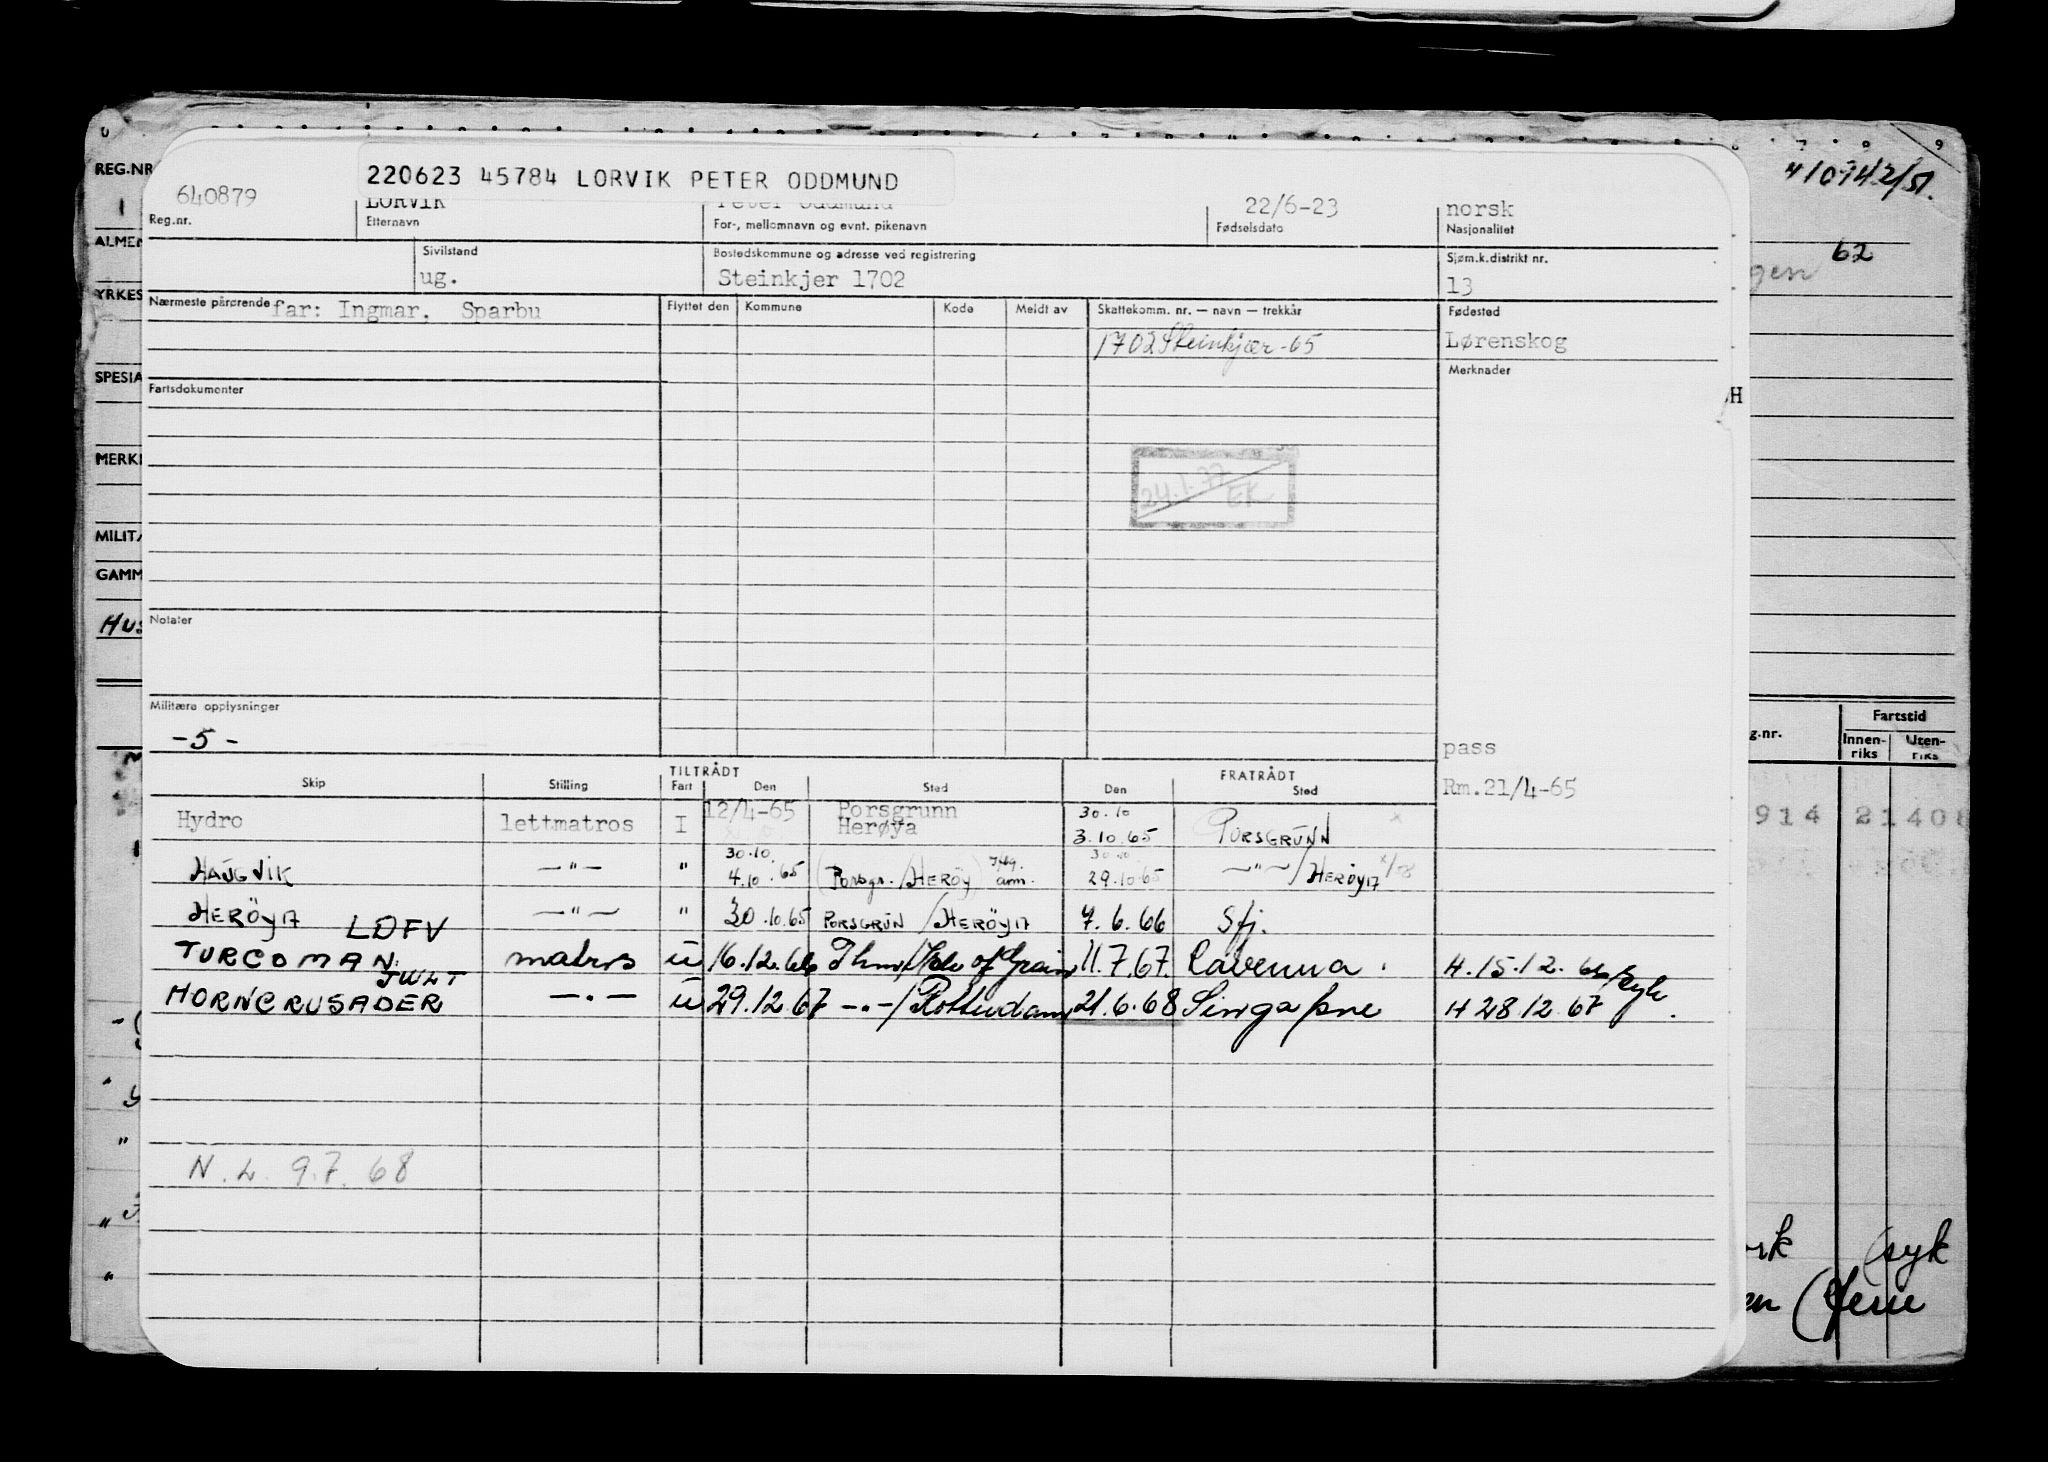 REG.NR
220623 45784 LORVIK PETER ODDMUND
410742/51.
640879 LORVIK Peter Oddmund 22/6-23 norsk
Reg.nr. Etternavn For-, mellomnavn og evnt. pikenavn Fødselsdato Nasjonalitet
ALMEN
62
Sivilstand Bostedskommune og adresse ved registrering Sjøm.k.distrikt nr.
ug. Steinkjer 1702 13
YRKES
Nærmeste pårørende far: Ingmar. Sparbu Flyttet den Kommune Kode Meldt av Skattekomm. nr. — navn — trekkår Fødested
1702 Steinkjær-65 Lørenskog
SPESIA
Fartsdokumenter Merknader
H
MERK
24.1.77 EK
MILIT
GAMM
Hus
Notater
Militære opplysninger
-5-
pass
g.nr. Fartstid
Innen-riks Uten-riks
TILTRÅDT FRATRÅDT
Skip Stilling Fart Den Sted Den Sted Rm.21/4-65
Hydro lettmatros I 12/4-65 Porsgrunn Herøya 30.10 3.10.65 PORSGRUNN x
914 21408
HAUGVIK —"— " 30.10. 4.10.65 (Porsgr./HERÖY) 30.10 29.10.65 —"—/HERÖYA
HERÖYA LDFV —"— " 30.10.65 PORSGRUN/HERÖYA 7.6.66 Sfj.
TURCOMAN matros u 16.12.66 Thm/Isle of Grain 11.7.67. Ravenna. H.15.12.66/syk
JWLT
HORNCRUSADER —"— u 29.12.67 —"—/Rotterdam 21.6.68 Singapore H 28.12.67.
N.L. 9.7.68
syk